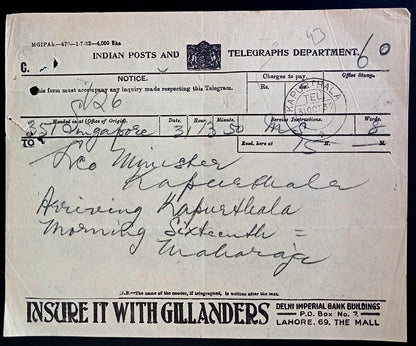 MGIPAh—470—1-7-32—4,000 Bks
43
INDIAN POSTS AND TELEGRAPHS DEPARTMENT.
60
C.
NOTICE.
This form must accompany any inquiry made respecting this Telegram.
Charges to pay.
Office Stamp.
Rs. As.
KAPURTHALA
TEL
26
Handed in at (Office of Origin). Date. Hour. Minute. Service Instructions. Words.
357 Singapore 31 13 50 8
TO
Recd. here at 15
Minister
Kapurthala
Arriving Kapurthala
Morning Sixteenth =
Maharaja
N.B.—The name of the sender, if telegraphed, is written after the text.
INSURE IT WITH GILLANDERS
DELHI IMPERIAL BANK BUILDINGS
P.O. BOX No. 7.
LAHORE, 69, THE MALL